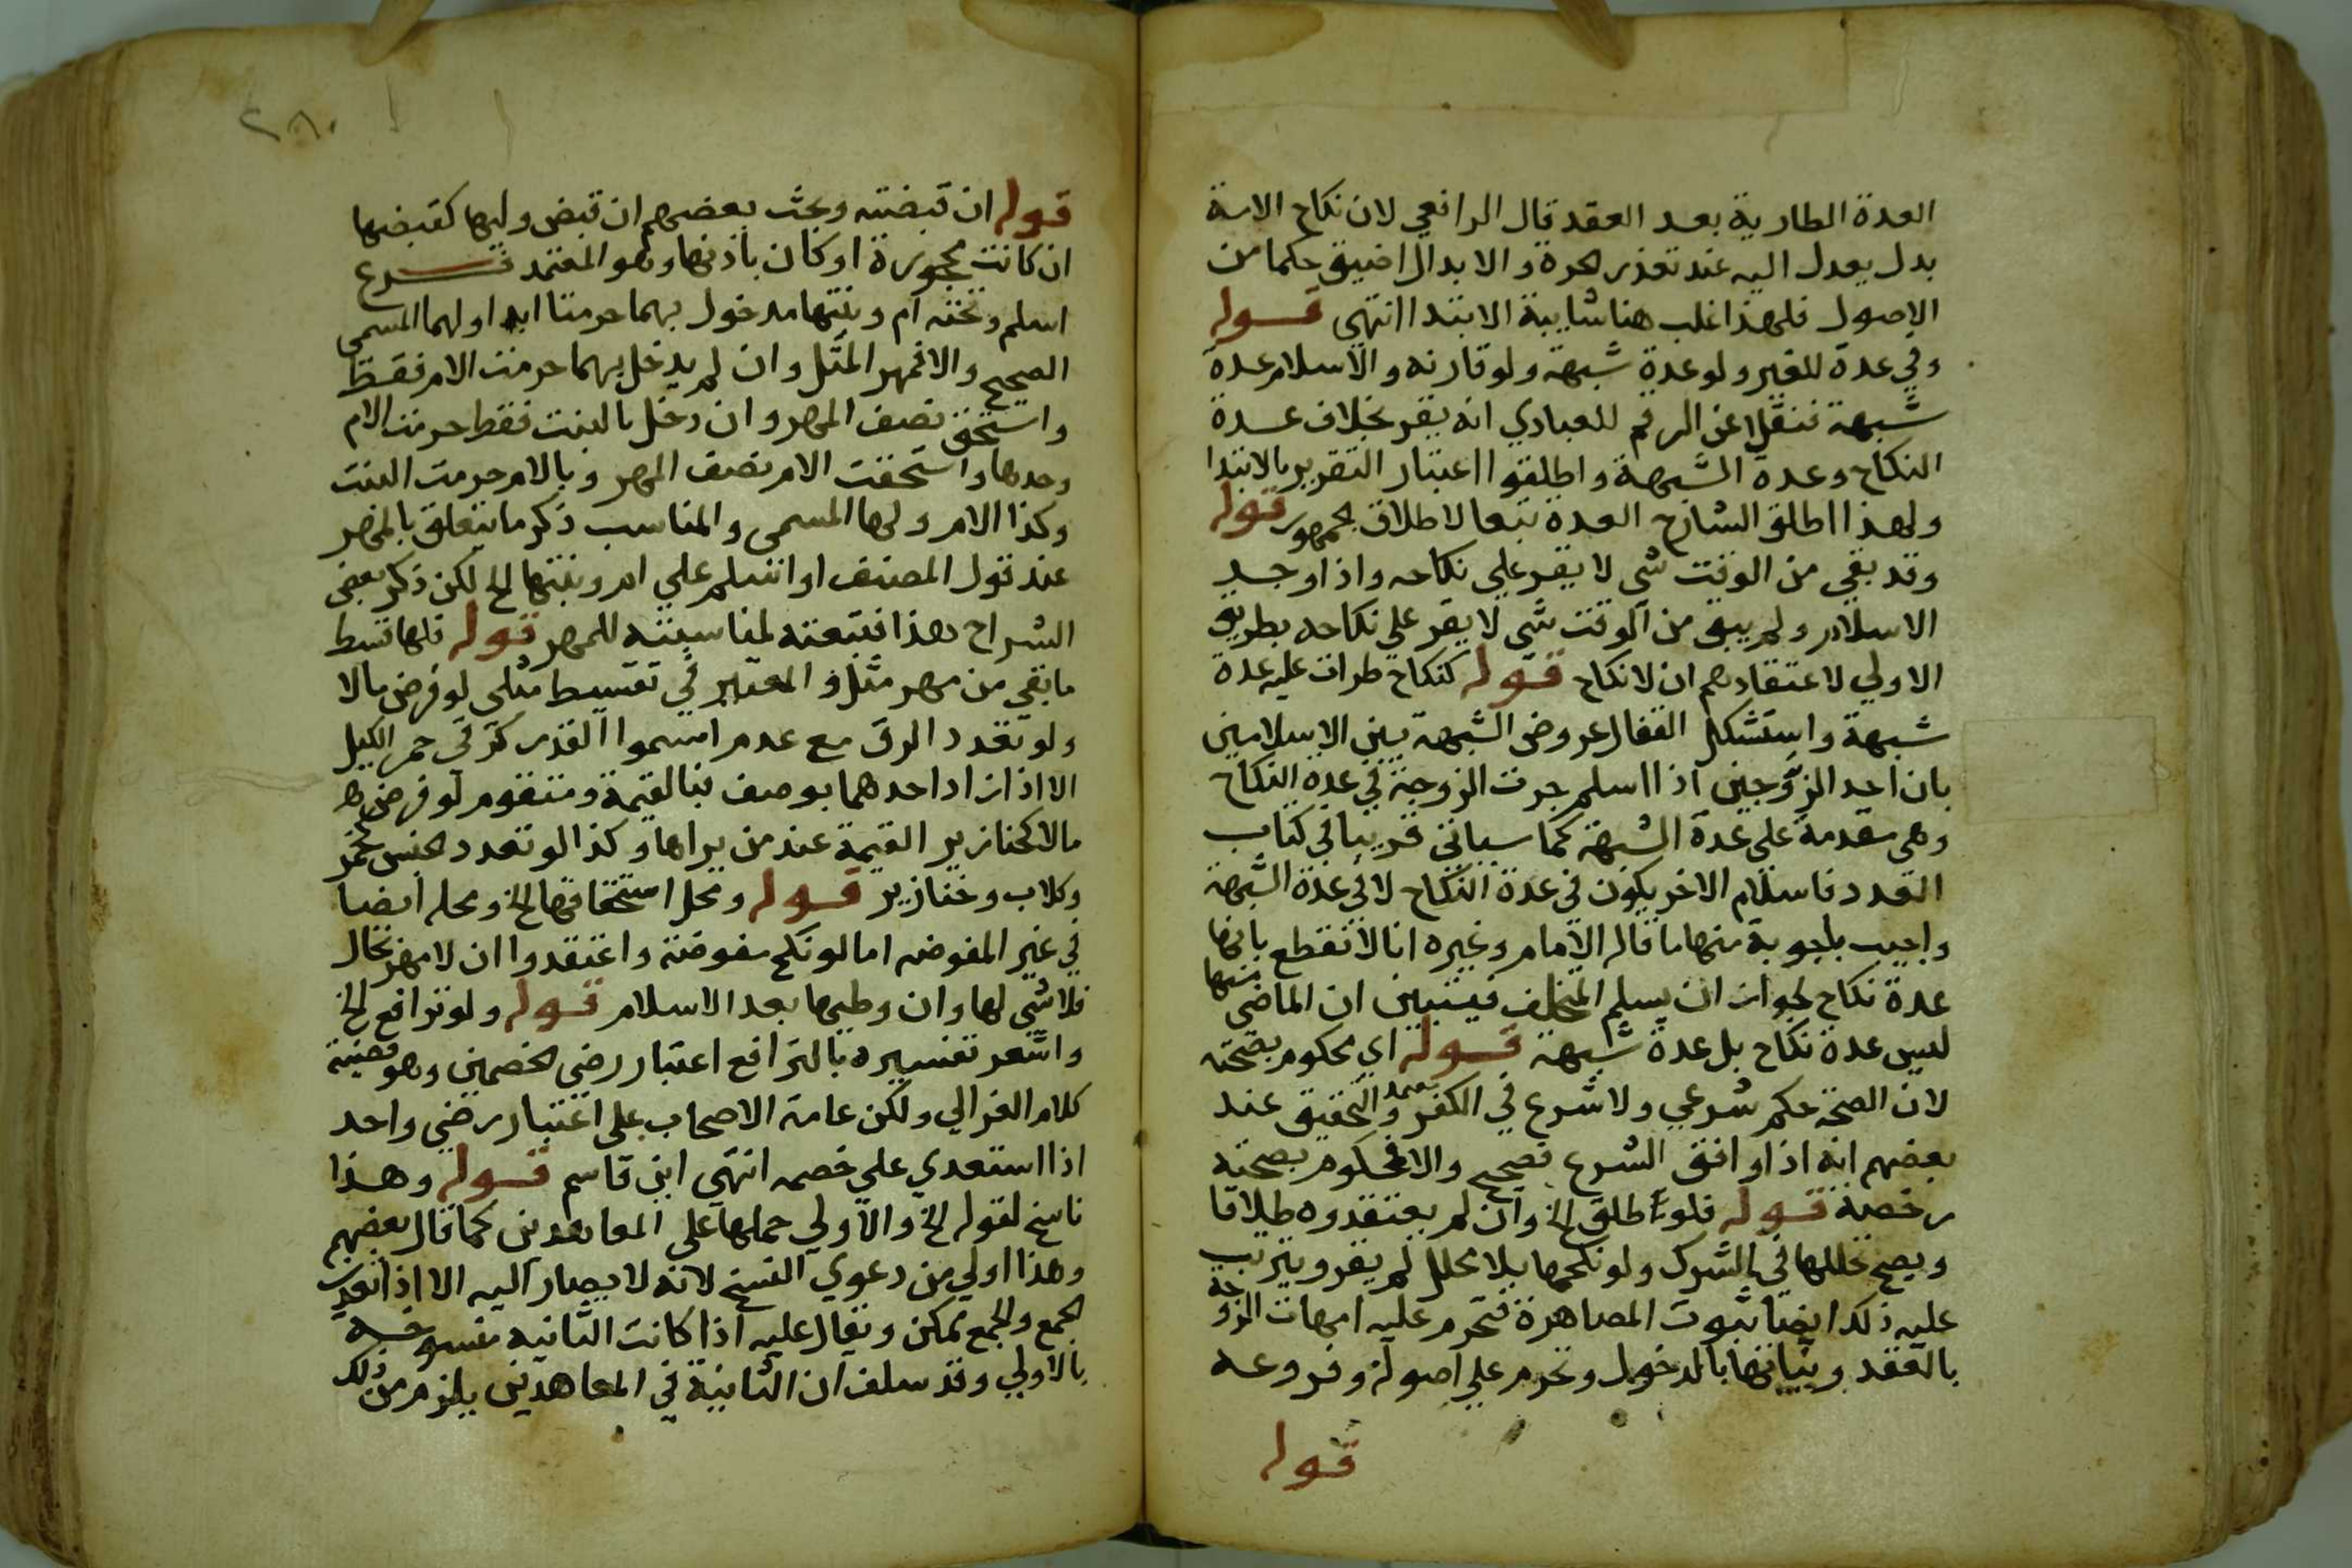 العدة الطارية بعد العقد قال الرافعي لان نكاح الامة
بدل يعدل اليه عند تعذر الحرة والابدال اضيق حكما من
الاصول فلهذا غلب هنا شايبة الابتدا انتهى قوله
وفي عدة للغير ولو عدة شبهة ولو قارنه والاسلام عدة
شبهة فنقلا عن الرقم للعبادي انه يقر بخلاف عدة
النكاح وعدة الشبهة واطلقوا اعتبار التقرير بالابتدا
ولهذا اطلق الشارح العدة تبعا لاطلاق الجمهور قوله
وقد بقي من الوقت شي لا يقر علي نكاحه واذا وجد
الاسلام ولم يبق من الوقت شي لا يقر علي نكاحه بطريق
الاولي لاعتقادهم ان لا نكاح قوله كنكاح طرات عليه عدة
شبهة واستشكل القفال عروض الشبهة بين الاسلامين
بان احد الزوجين اذا اسلم جرت الزوجة في عدة النكاح
وهي مقدمة علي عدة الشبهة كما سياتي قريبا في كتاب
العدد فاسلام الاخر يكون في عدة النكاح لا في عدة الشبهة
واجيب باجوبة منها ما قاله الامام وغيره انا لا نقطع بانها
عدة نكاح لجواز ان يسلم المتخلف فيتبين ان الماضي منها
ليس عدة نكاح بل عدة شبهة قوله اي محكوم بصحته
لان الصحة حكم شرعي ولا شرع في الكفر والتحقيق عند
بعضهم انه اذا وافق الشرع فصحيح والا فمحكوم بصحته
رخصة قوله فلو طلق الخ وان لم يعتقدوه طلاقا
ويصح تحللها في الشرك ولو نكحها بلا محلل لم يقر ويترتب
عليه ذلك ايضا ثبوت المصاهرة فتحرم عليه امهات الزوجة
بالعقد وبناتها بالدخول وتحرم علي اصوله وفروعه
قوله
٢٨٠
قوله ان قبضتيه وبحث بعضهم ان قبض وليها كقبضها
ان كانت محجورة او كان باذنها وهو المعتمد فرع
اسلم وتحته ام وبنتها مدخول بهما حرمتا ابدا ولهما المسمى
الصحيح والا فمهر المثل وان لم يدخل بهما حرمت الام فقط
واستحق نصف المهر وان دخل بالبنت فقط حرمت الام
وحدها واستحقت الام نصف المهر وبالام حرمت البنت
وكذا الام ولها المسمى والمناسب ذكر ما يتعلق بالمهر
عند قول المصنف او اسلم علي ام وبنتها الخ لكن ذكر بعض
الشراح هذا فتبعته لمناسبته للمهر قوله فلها قسط
ما بقي من مهر مثل والمعتبر في تقسيط مثلي لو فرض مالا
ولو تعدد الزق مع عدم استووا القدر كزقي خمر الكيل
الا اذا زاد احدهما بوصف فبالقيمة ومتقوم لو فرض
مالا كخنازير القيمة عند من يراها وكذا لو تعدد الجنس كخمر
وكلاب وخنازير قوله ومحل استحقاقها الخ ومحله ايضا
في غير المفوضه اما لو نكح مفوضة واعتقدوا ان لا مهر بحال
فلا شي لها وان وطيها بعد الاسلام قوله ولو ترافع الخ
واشعر تفسيره بالترافع اعتبار رضي الخصمين وهو قضية
كلام الغزالي ولكن عامة الاصحاب علي اعتبار رضي واحد
اذا استعدي علي خصمه انتهي ابن قاسم قوله وهذا
ناسخ لقوله الخ والاولي حملها علي المعاهدين كما قال بعضهم
وهذا اولي من دعوي النسخ لانه لا يصار اليه الا اذا تعذر
الجمع والجمع ممكن ويقال عليه اذا كانت الثانيه منسوخة
بالاولي وقد سلف ان الثانية في المعاهدين يلزم من ذلك